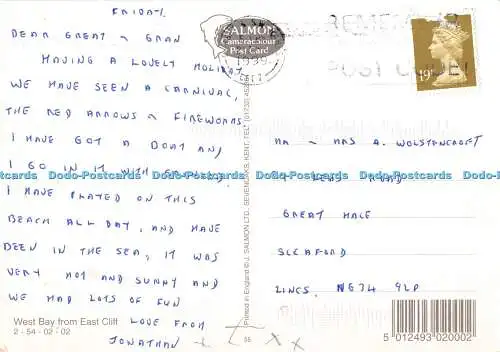 FRIDAY.
DEAR GREAT ~ GRAN
HAVING A LOVELY HOLIDAY
WE HAVE SEEN A CARNIVAL,
THE RED ARROWS ~ FIREWORKS.
I HAVE GOT A BOAT AND
I GO IN IT WITH
I HAVE PLAYED ON THIS
BEACH ALL DAY, AND HAVE
BEEN IN THE SEA, IT WAS
VERY HOT AND SUNNY AND
WE HAD LOTS OF FUN
LOVE FROM
JONATHAN X X X
West Bay from East Cliff
2 - 54 - 02 - 02
SALMON
Cameracolour
Post Card
1999
REMEMBER
POST CODE
19
Printed in England © J. SALMON LTD., SEVENOAKS, KENT. TEL: (01732)
MR ~ MRS A. WOLSTENCROFT
ROAD
GREAT HALE
SLEAFORD
LINCS. NG34 9LP
Dodo-Postcards Dodo-Postcards Dodo-Postcards Dodo-Postcards Dodo-Postcards
5 012493 020002